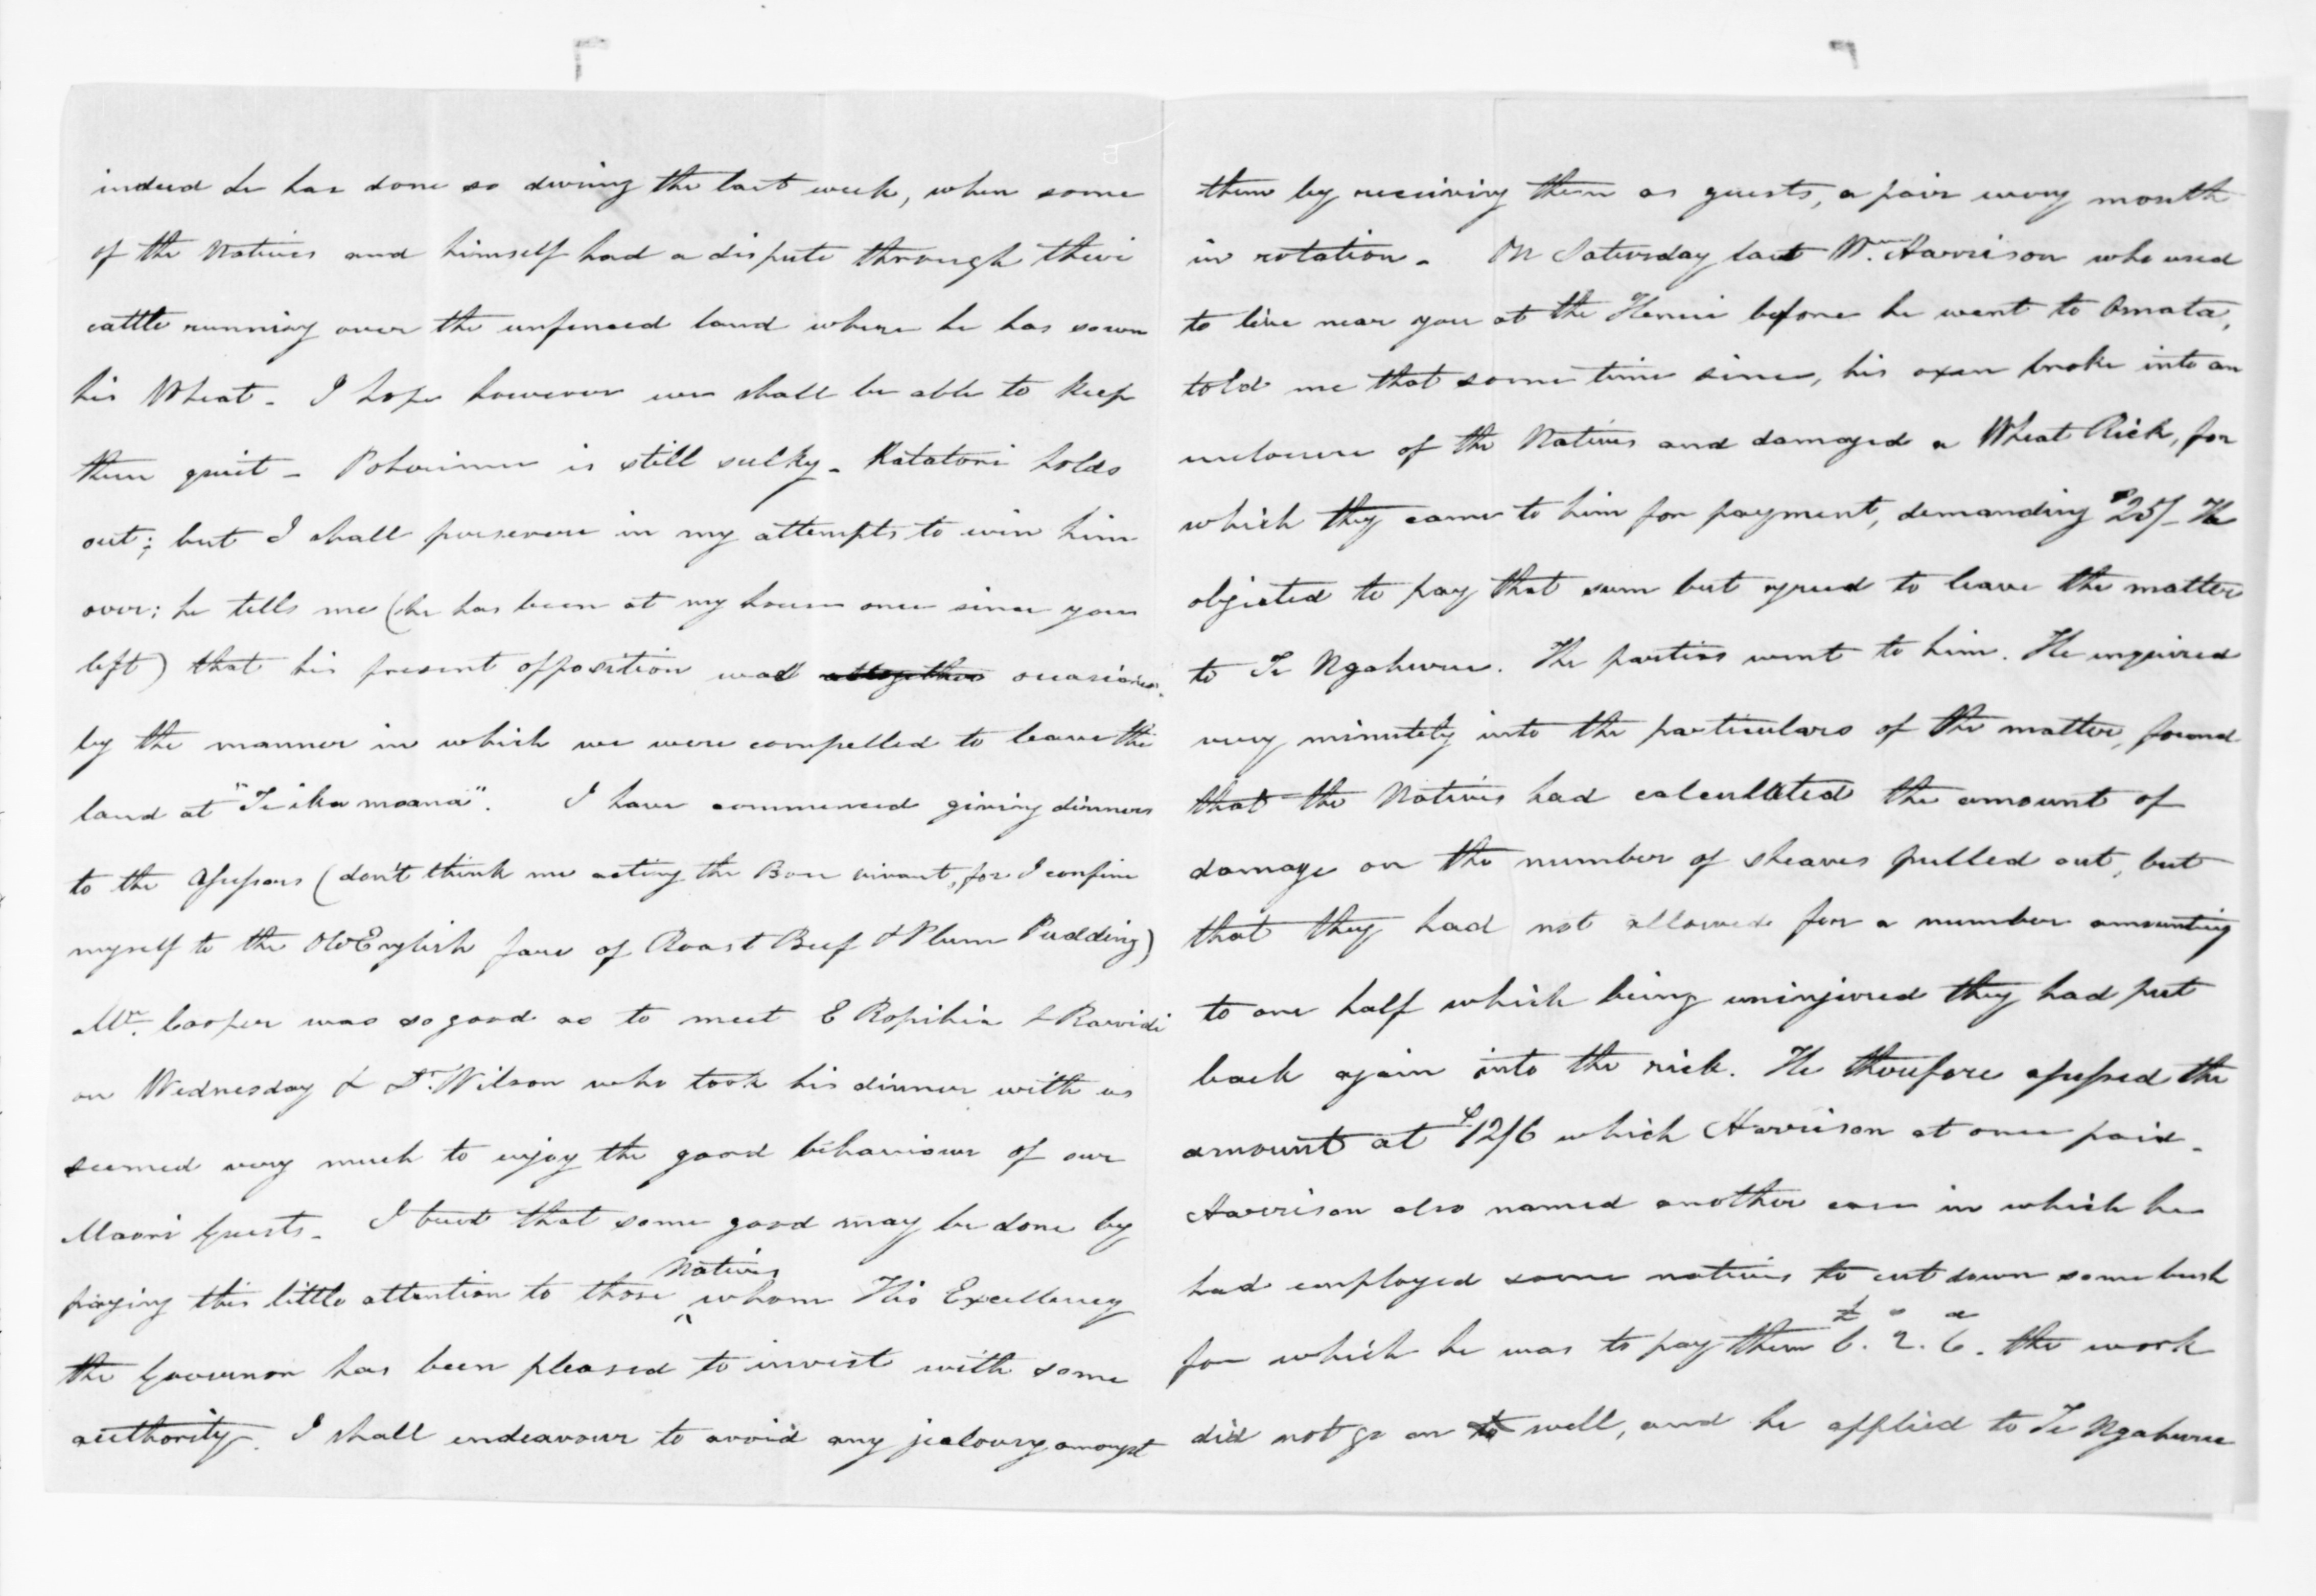 indeed he has done so during the last week, when some
of the Natives and himself had a dispute through their
cattle running over the unfenced land where he has sown
his Wheat. I hope however we shall be able to keep
them quiet - is still sulky - Katatori holds
out; but I shall persevere in my attempts to win him
over; he tells me (he has been at my house once since you
left) that his present opposition was altogether occasioned
by the manner in which we were compelled to leave the
land at "Te ika moana". I have commenced giving dinners
to the Assessors (don't think me acting the Bon vivant, for I confine
myself to the Old English fare of Roast Beef & Plum Pudding)
Mr. Cooper was so good as to meet E Ropihia & Rawiri
on Wednesday & Dr. Wilson who took his dinner with us
seemed very much to enjoy the good behaviour of our
Maori Guests. I trust that some good may be done by
Natives
paying this little attention to those whom His Excellency
the Governor has been pleased to invest with some
authority. I shall endeavour to avoid any jealousy amongst
them by receiving them as guests, a pair every month
in rotation. On Saturday last Wm. Harrison who used
to live near you at the Henui before he went to Omata,
told me that some time since, his oxen broke into an
enclosure of the Natives and damaged a Wheat Rick, for
which they came to him for payment, demanding 25/- He
objected to pay that sum but agreed to leave the matter
to Te Ngahuru. The parties went to him. He enquired
very minutely into the particulars of the matter, found
that the Natives had calculated the amount of
damage on the number of sheaves pulled out, but
that they had not allowed for a number amounting
to one half which being uninjured they had put
back again into the rick. He therefore assessed the
amount at 12/6 which Harrison at once paid.
Harrison also named another case in which he
had employed some natives to cut down some bush
for which he was to pay them £6. 2. 6. the work
did not go on to well, and he applied to Te Ngahuru